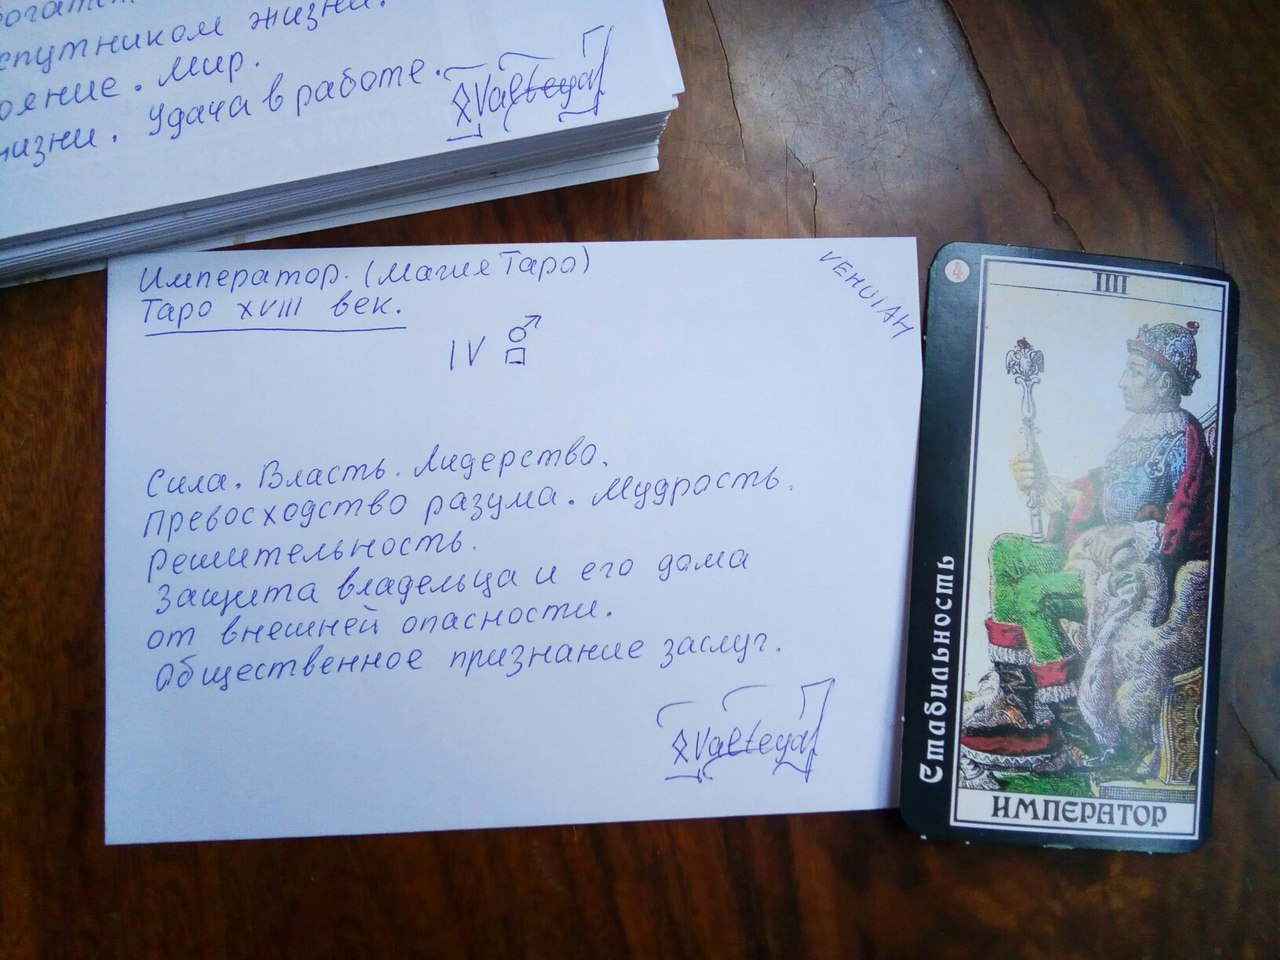 спутником жизни.
Мир.
Удача в работе.
Valteya
Император. (Магия Таро)
Таро XVIII век.
VEHUIAH
IV
Сила. Власть. Лидерство.
Превосходство разума. Мудрость.
Решительность.
Защита владельца и его дома
от внешней опасности.
Общественное признание заслуг.
Valteya
4
IIII
Стабильность
ИМПЕРАТОР